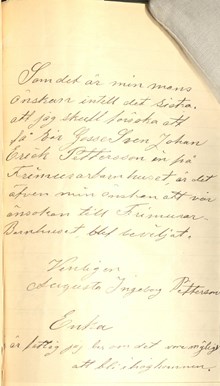 Som det är min mans
önskan intill det sista.
att jag skull försöka att
få vår Gusse Sven Johan
Erick Pettersson in på
Frimurarbarnhuset, är det
äfven min önskan att vår
ansökan till Frimurar-
Barnhuset blef beviljat.
Venligen
Augusta Ingeborg Petterson
Enka
är fattig jag ber om det vore möjligt
att bli ihogkommen.